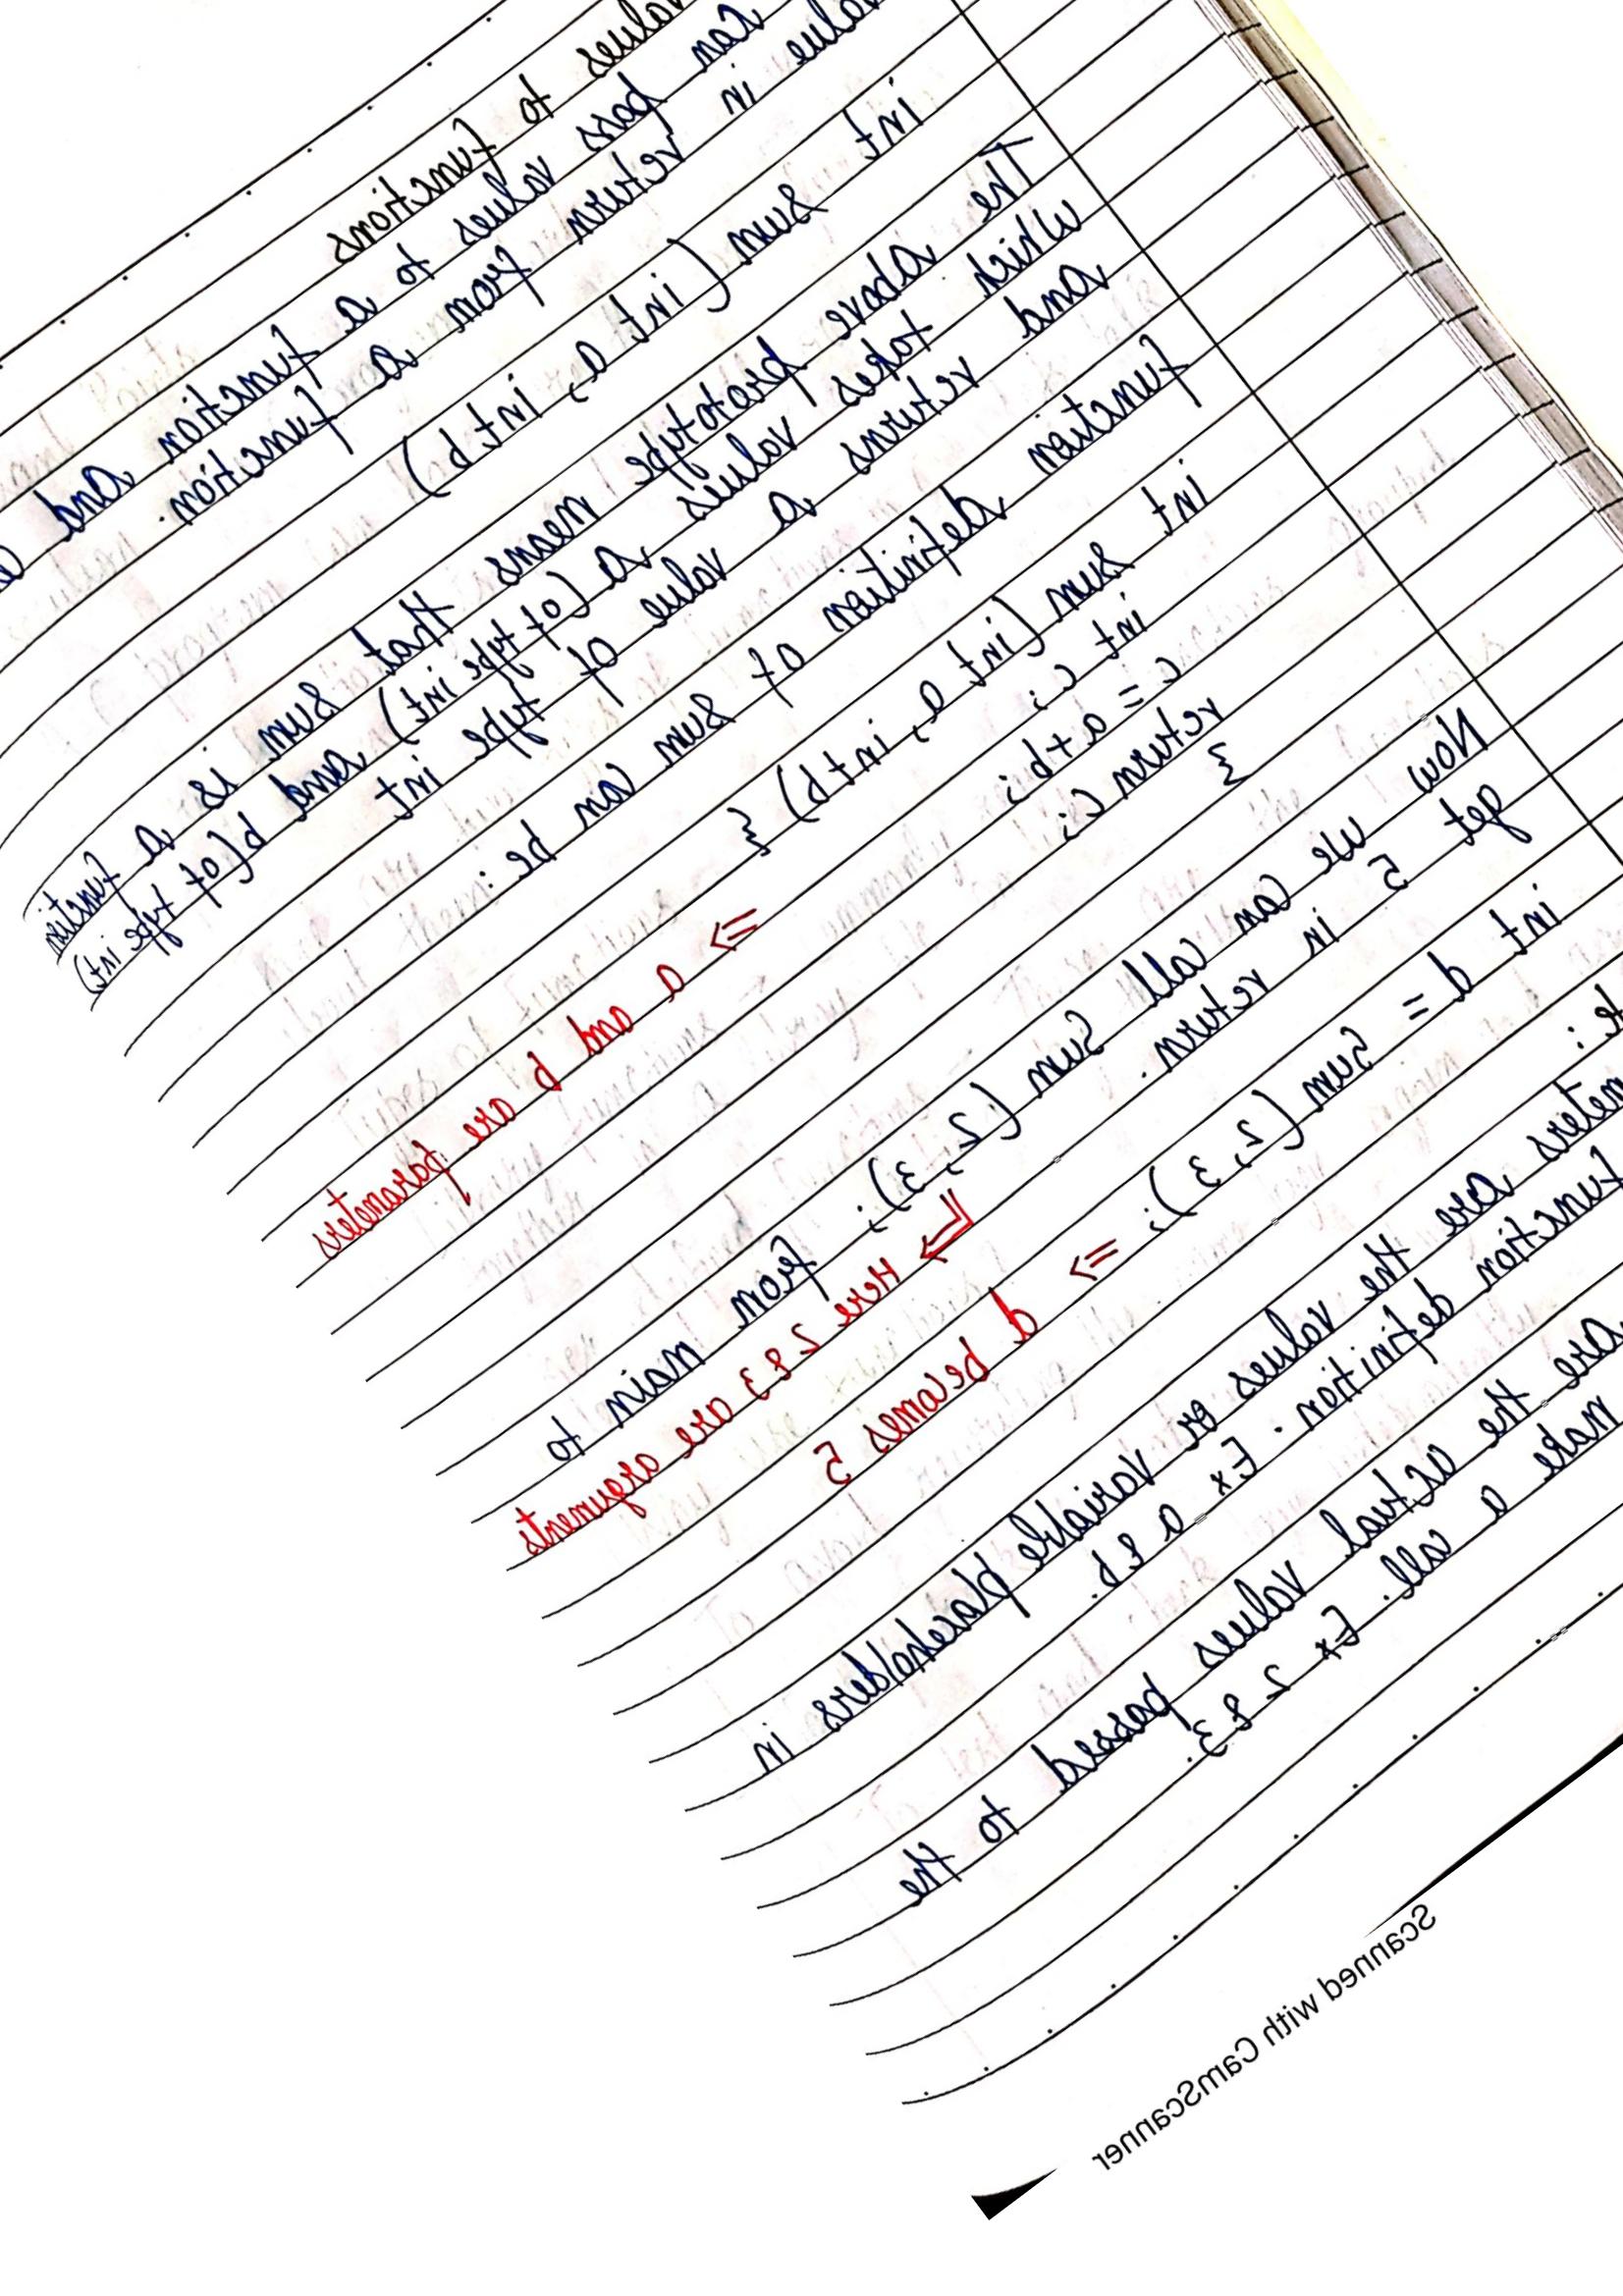 values to functions
can pass values to a function and
value in return from a function.
int sum (int a, int b)
The above prototype means that sum is a function
which takes values a (of type int) and b (of type int)
and returns a value of type int
function definition of sum can be:
int sum (int a, int b) {
int c;
c = a+b;
return c;
}
⇒ a and b are parameters
Now we can call sum (2, 3); from main to
get 5 in return.
⇒ Here 2 & 3 are arguments
int d = sum (2, 3); ⇒ d becomes 5
te:
meters are the values or variable placeholders in
function definition. Ex a & b.
are the actual values passed to the
make a call. Ex 2 & 3.
Scanned with CamScanner